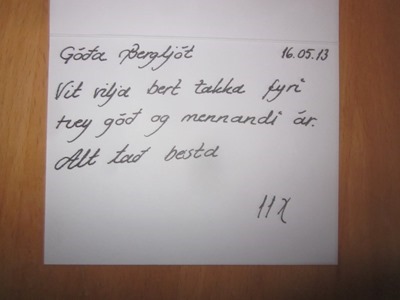 Góða Bergljót 16.05.13
Vit vilja bert takka fyri
trey góð og mennandi ár.
Alt tað besta
11X